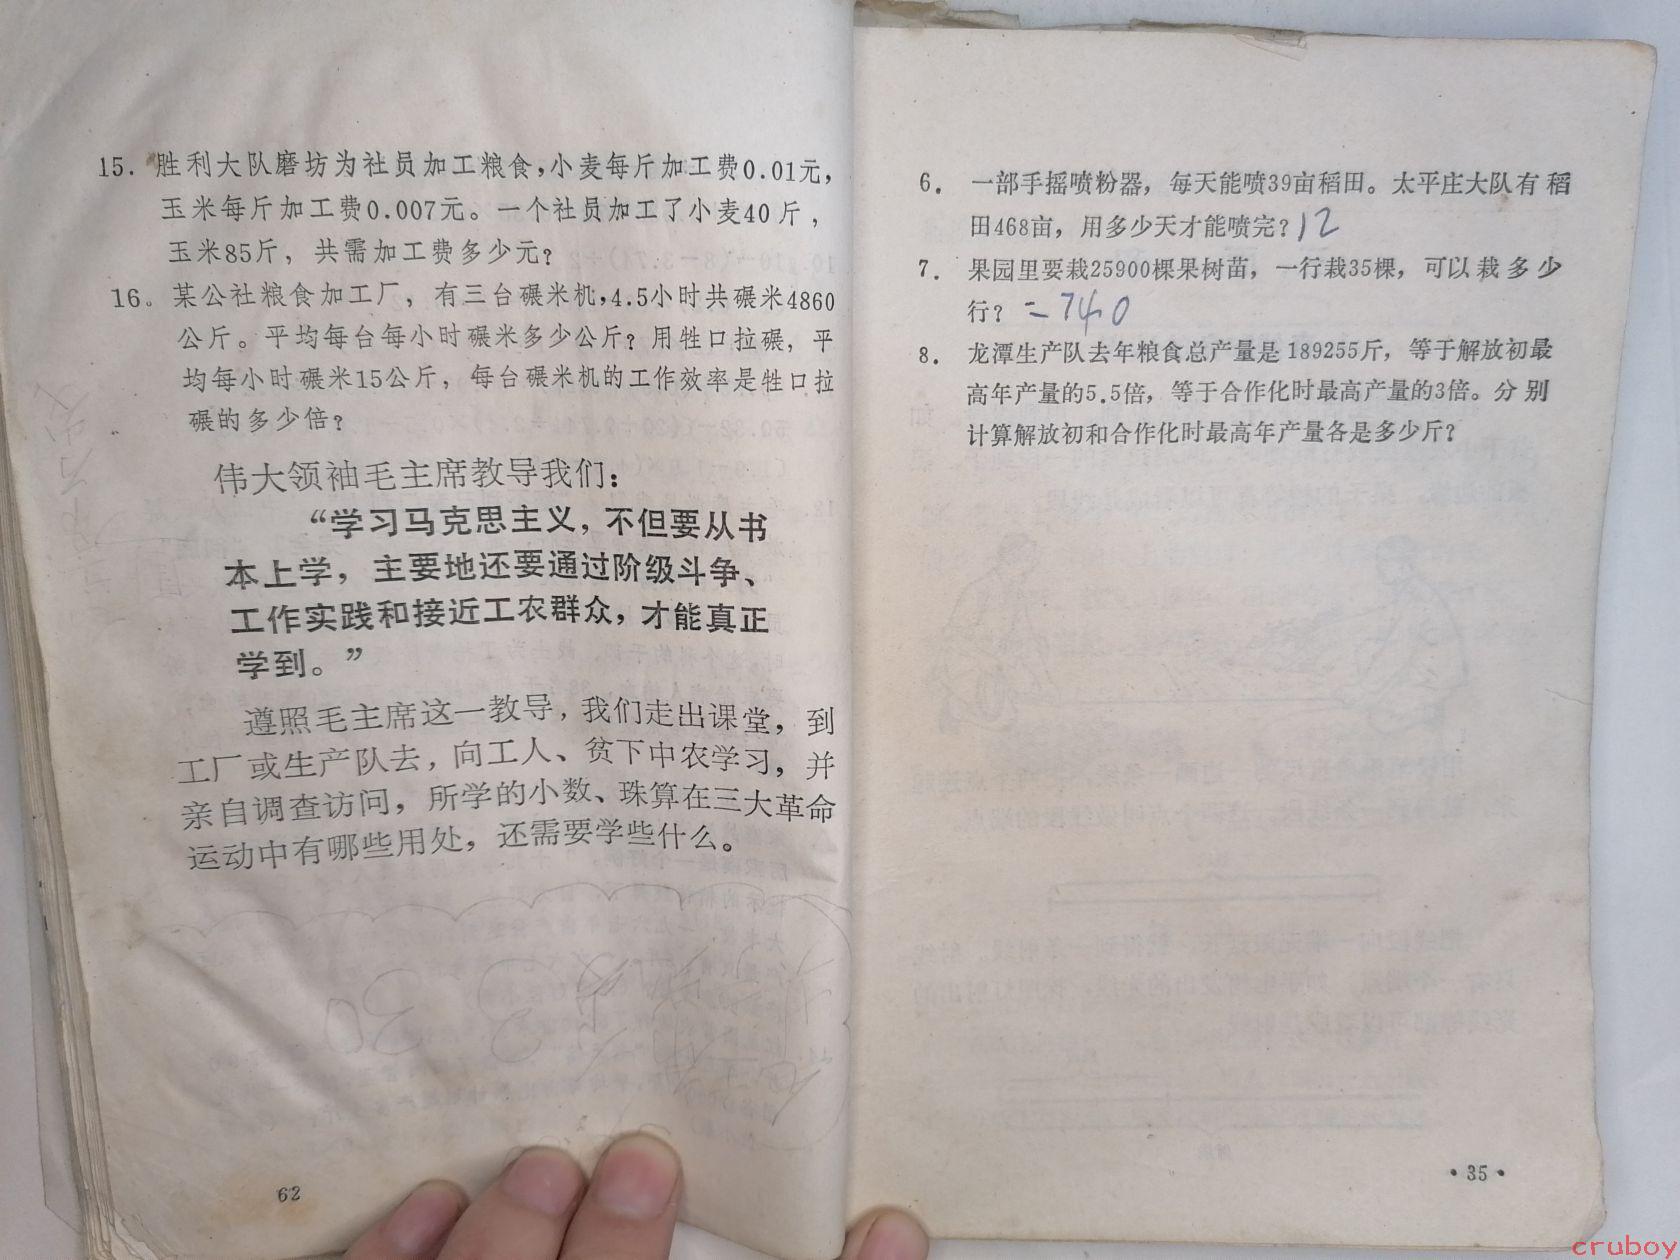 15. 胜利大队磨坊为社员加工粮食,小麦每斤加工费0.01元,
玉米每斤加工费0.007元。一个社员加工了小麦40斤,
玉米85斤, 共需加工费多少元?
16。某公社粮食加工厂, 有三台碾米机,4.5小时共碾米4860
公斤。平均每台每小时碾米多少公斤? 用牲口拉碾, 平
均每小时碾米15公斤, 每台碾米机的工作效率是牲口拉
碾的多少倍?
伟大领袖毛主席教导我们:
“学习马克思主义, 不但要从书
本上学, 主要地还要通过阶级斗争、
工作实践和接近工农群众, 才能真正
学到。”
遵照毛主席这一教导, 我们走出课堂, 到
工厂或生产队去, 向工人、贫下中农学习, 并
亲自调查访问, 所学的小数、珠算在三大革命
运动中有哪些用处, 还需要学些什么。
62
6. 一部手摇喷粉器, 每天能喷39亩稻田。太平庄大队有稻
田468亩, 用多少天才能喷完? 12
7. 果园里要栽25900棵果树苗, 一行栽35棵, 可以栽多少
行? =740
8. 龙潭生产队去年粮食总产量是189255斤, 等于解放初最
高年产量的5.5倍, 等于合作化时最高产量的3倍。分别
计算解放初和合作化时最高年产量各是多少斤?
·35·
cruboy